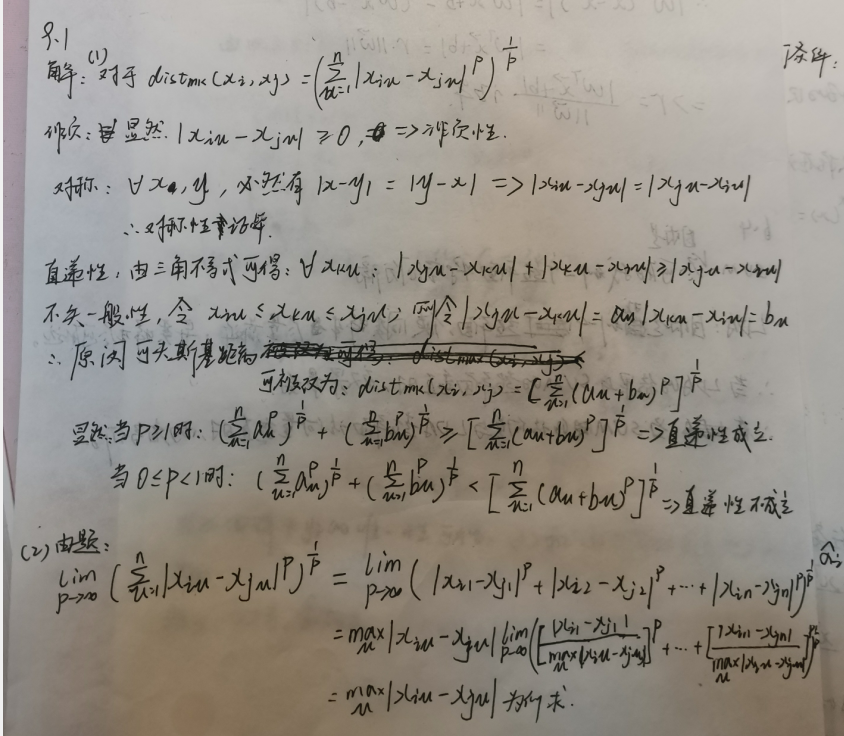 9.1
解: (1) 对于 distmk(xi, xj) = (∑_{u=1}^{n} |xiu - xju|^p)^{1/p}
条件:
非负: 显然 |xiu - xju| ≥ 0, => 非负性.
对称: ∀ x, y, 必然有 |x-y| = |y-x| => |xiu - xju| = |xju - xiu|
∴ 对称性证毕.
直递性: 由三角不等式可得: ∀ xku: |xju - xku| + |xku - xiu| ≥ |xju - xiu|
不失一般性, 令 xiu ≤ xku ≤ xju; 则令 |xju - xku| = au |xku - xiu| = bu
∴ 原闵可夫斯基距离
可被改为: distmk(xi, xj) = [∑_{u=1}^{n} (au + bu)^p]^{1/p}
显然: 当 p≥1时: (∑_{u=1}^{n} au^p)^{1/p} + (∑_{u=1}^{n} bu^p)^{1/p} ≥ [∑_{u=1}^{n} (au+bu)^p]^{1/p} => 直递性成立.
当 0≤p<1时: (∑_{u=1}^{n} au^p)^{1/p} + (∑_{u=1}^{n} bu^p)^{1/p} < [∑_{u=1}^{n} (au+bu)^p]^{1/p} => 直递性不成立
(2) 由题:
lim_{p→∞} (∑_{u=1}^{n} |xiu - xju|^p)^{1/p} = lim_{p→∞} (|xi1 - xj1|^p + |xi2 - xj2|^p + ··· + |xin - xjn|^p)^{1/p}
= max_u |xiu - xju| lim_{p→∞} ([|xi1 - xj1| / max_u |xiu - xju|]^p + ··· + [|xin - xjn| / max_u |xiu - xju|]^p)^{1/p}
= max_u |xiu - xju| 为所求.